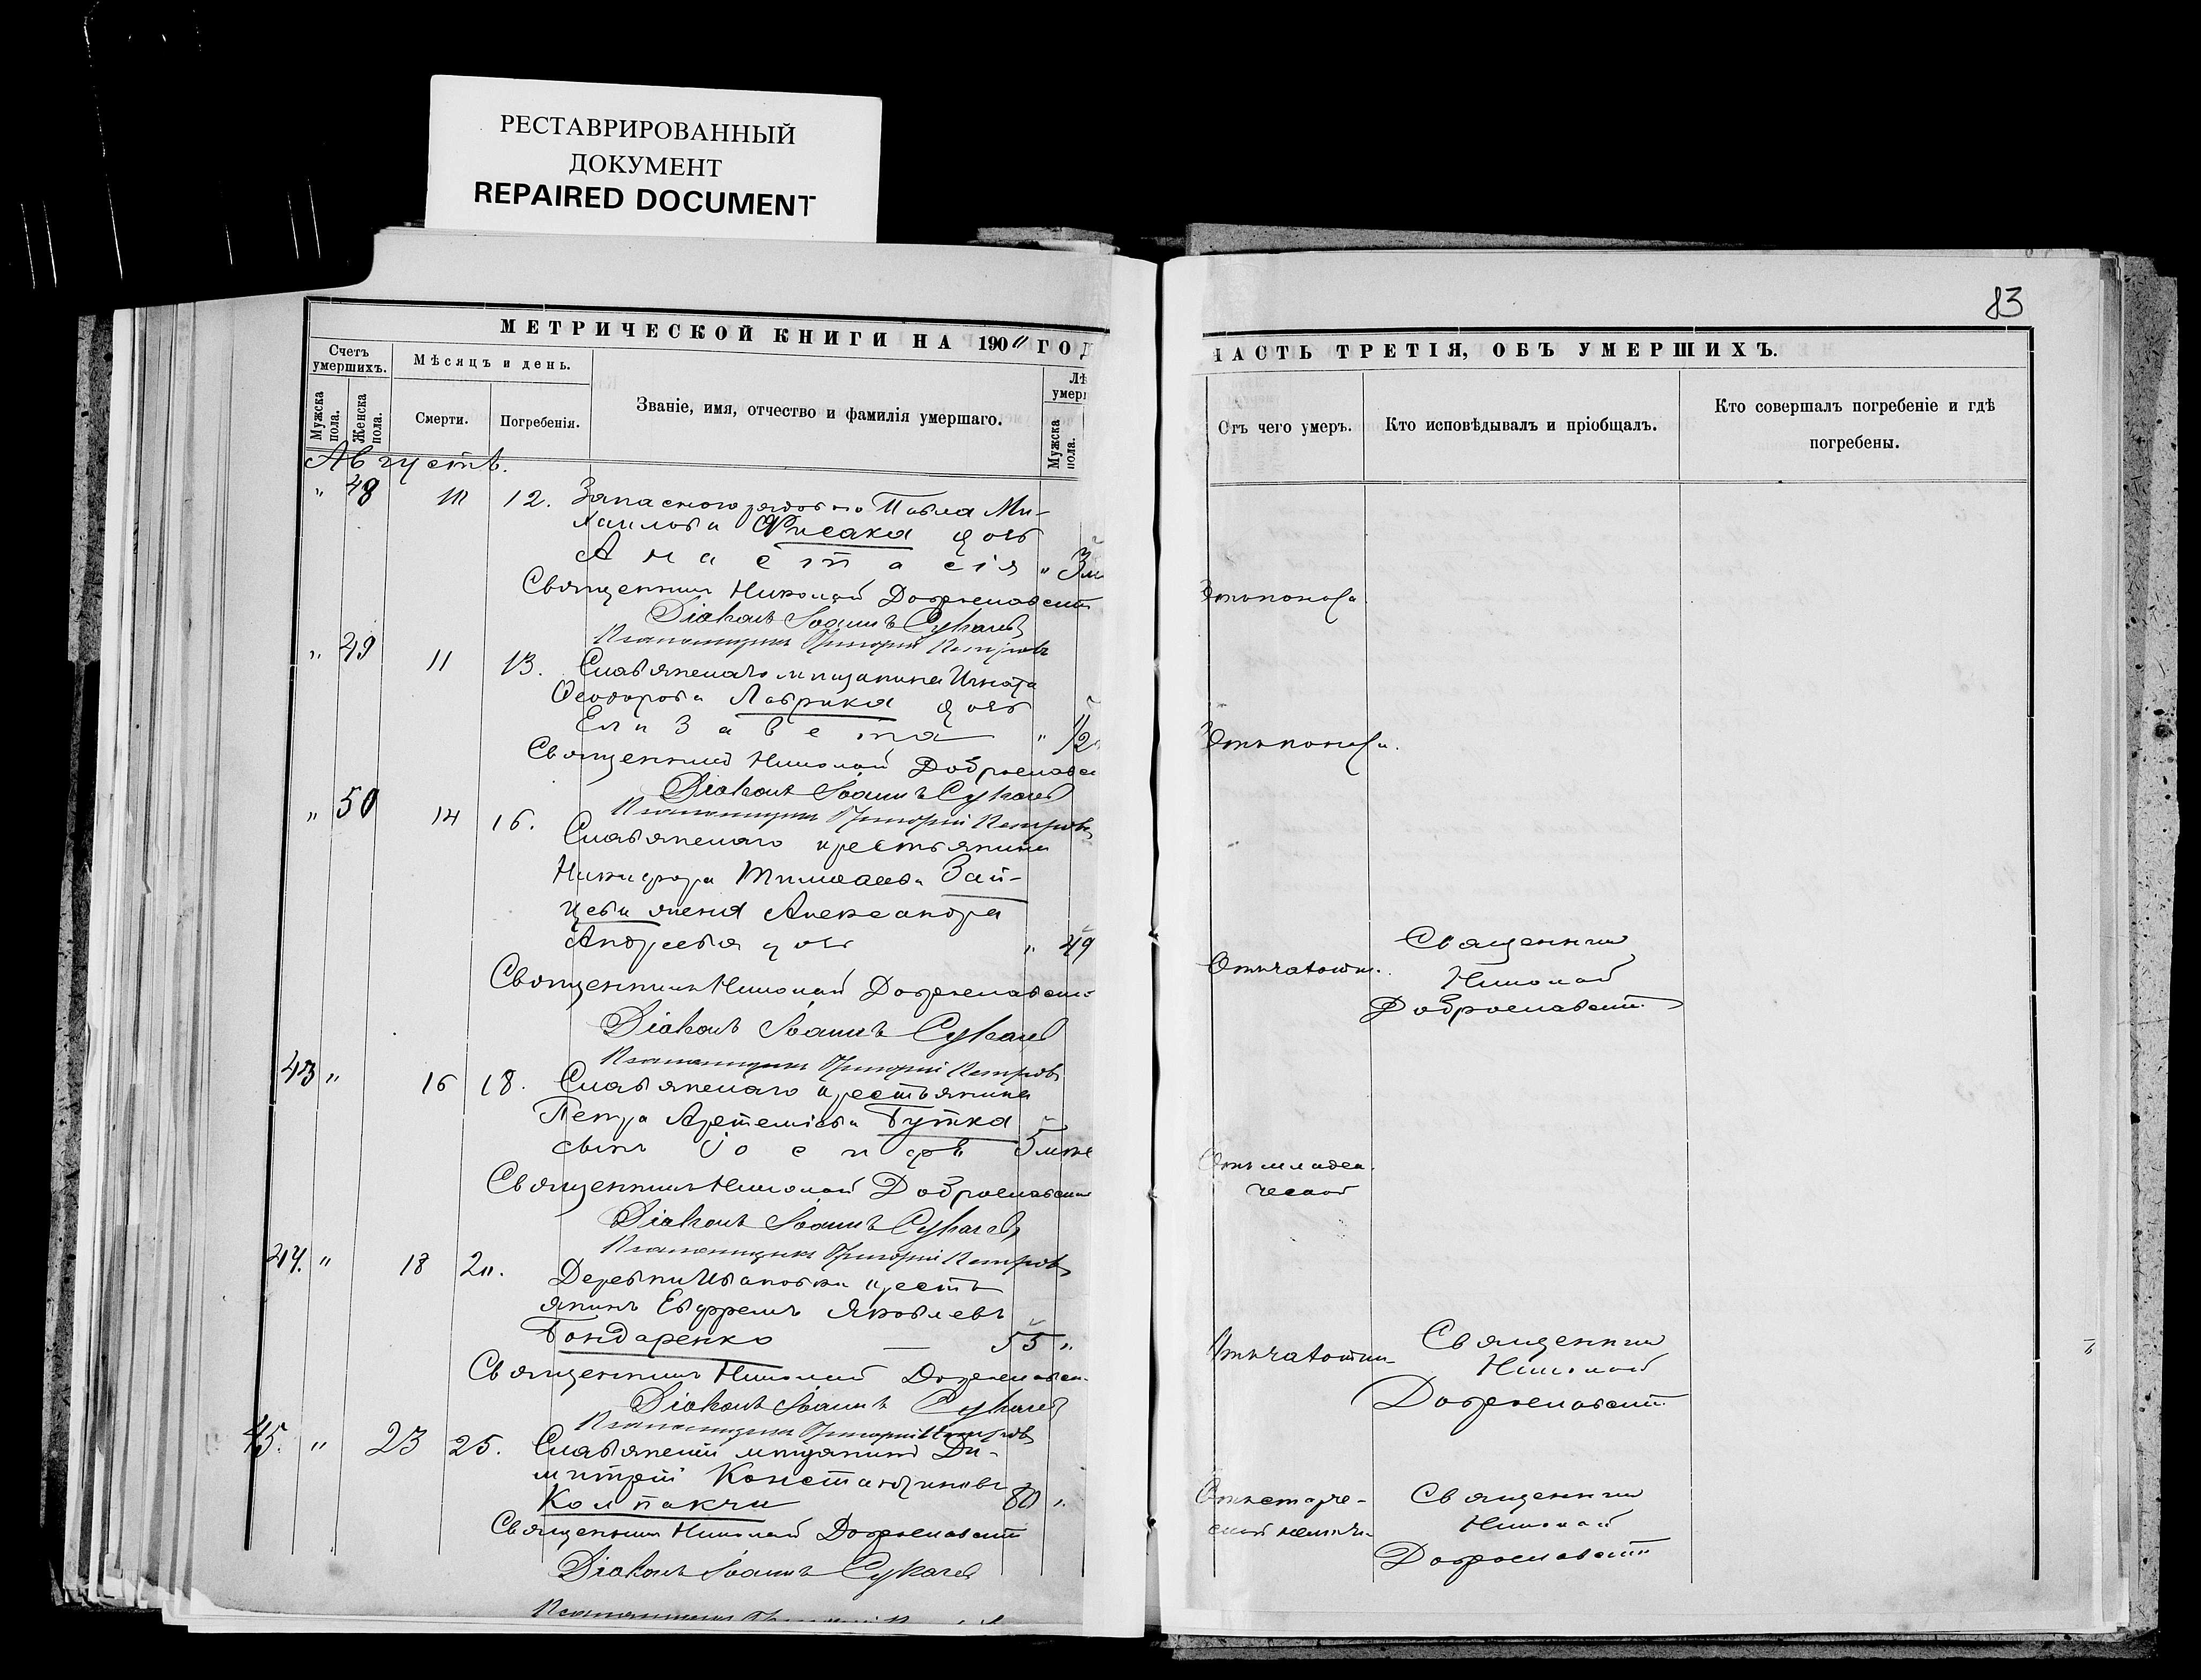 РЕСТАВРИРОВАННЫЙ
ДОКУМЕНТ
REPAIRED DOCUMENT
МЕТРИЧЕСКОЙ КНИГИ НА 190 ГОД
Счетъ умершихъ.
Мужска пола.
Женска пола.
Мѣсяцъ и день.
Смерти.
Погребенія.
Званіе, имя, отчество и фамилія умершаго.
Мужска пола.
Августъ.
" 48 12. Запаснаго рядового Павла Ми-
хаилова дочь
Анастасія "
Священникъ Николай Доброславскій
Діаконъ Іоаннъ Сукачевъ
Псаломщикъ Григорій Петровъ
" 49 11 13. Славянскаго мѣщанина Игната
Ѳеодорова Лаврика дочь
Елизавета " 1/2
Священникъ Николай Доброславск
Діаконъ Іоаннъ Сукачевъ
Псаломщикъ Григорій Петровъ
" 50 14 16. Славянскаго крестьянина
Никифора Тимофеева Зай-
цева жена Александра
Андреева дочь " 49
Священникъ Николай Доброславскі
Діаконъ Іоаннъ Сукачевъ
Псаломщикъ Григорій Петровъ
43 " 16 18. Славянскаго крестьянина
Петра Артеміева Бутка
сынъ Іосифъ 5 мѣс
Священникъ Николай Доброславскій
Діаконъ Іоаннъ Сукачевъ
Псаломщикъ Григорій Петровъ
44. " 18 20. Деревни Ивановки кресть
янинъ Ефремъ Яковлевъ
Бондаренко — 55 "
Священникъ Николай Доброславск
Діаконъ Іоаннъ Сукачевъ
Псаломщикъ Григорій Петровъ
45. " 23 25. Славянскій мѣщанинъ Ди-
митрій Константиновъ
Колпакчи 80 "
Священникъ Николай Доброславскій
Діаконъ Іоаннъ Сукачевъ
83
ЧАСТЬ ТРЕТІЯ, ОБЪ УМЕРШИХЪ.
Отъ чего умеръ.
Кто исповѣдывалъ и пріобщалъ.
Кто совершалъ погребеніе и гдѣ
погребены.
Отъ поноса
Отъ поноса.
Отъ чахотки.
Священникъ
Николай
Доброславскій
Отъ младен
ческой
Отъ чахотки
Священникъ
Николай
Доброславскій
Отъ старче-
ской немощи
Священникъ
Николай
Доброславскій